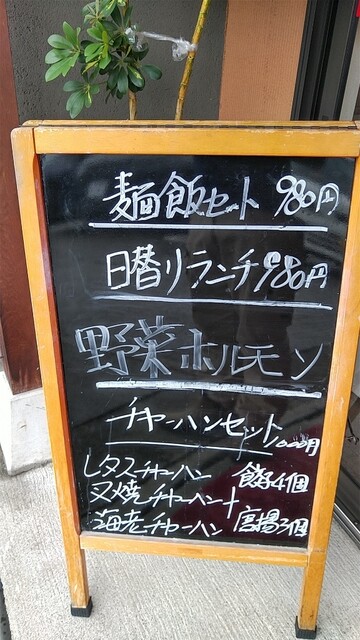 麺飯セット 980円
日替りランチ 980円
野菜ホルモン
チャーハンセット 1000円
レタスチャーハン 餃子4個
叉焼チャーハン+
海老チャーハン 唐揚3個